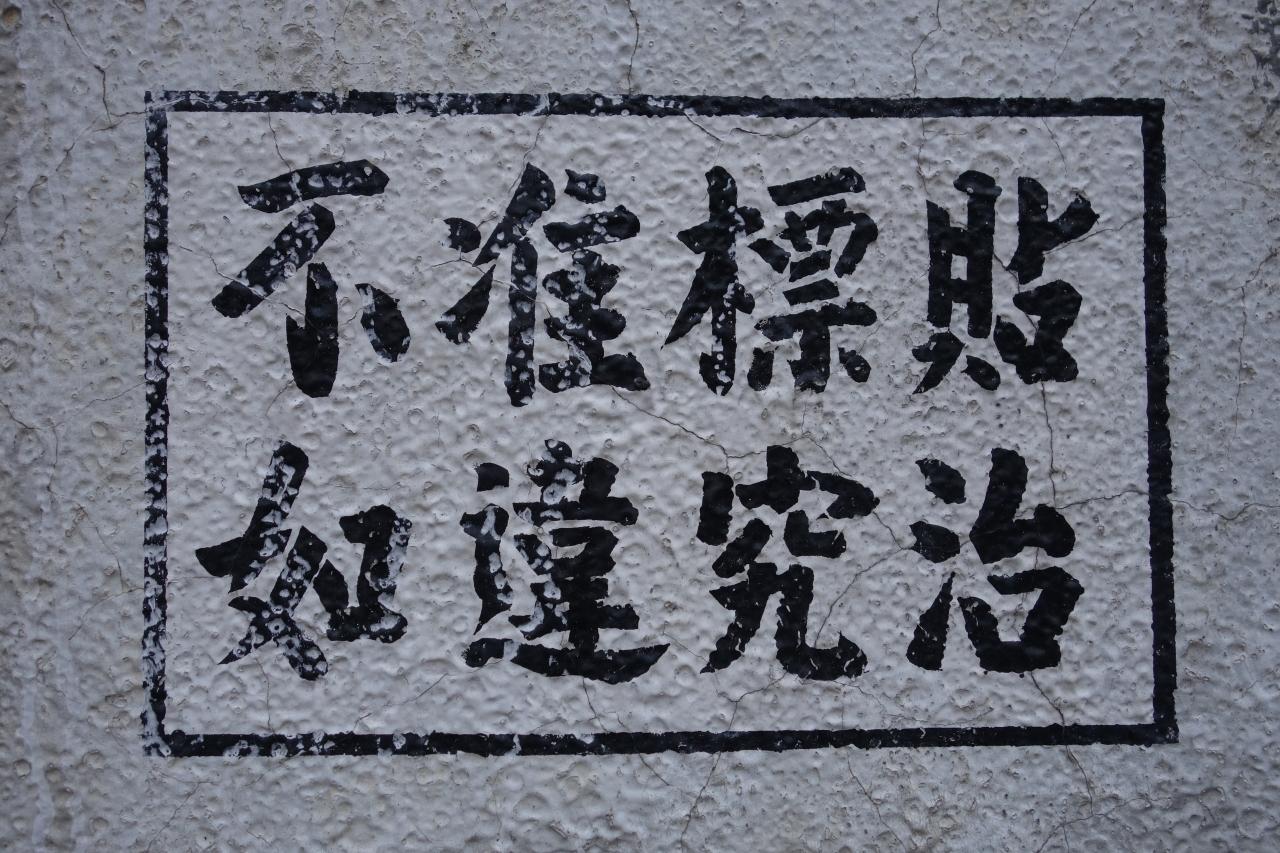 不准標貼
如違究治